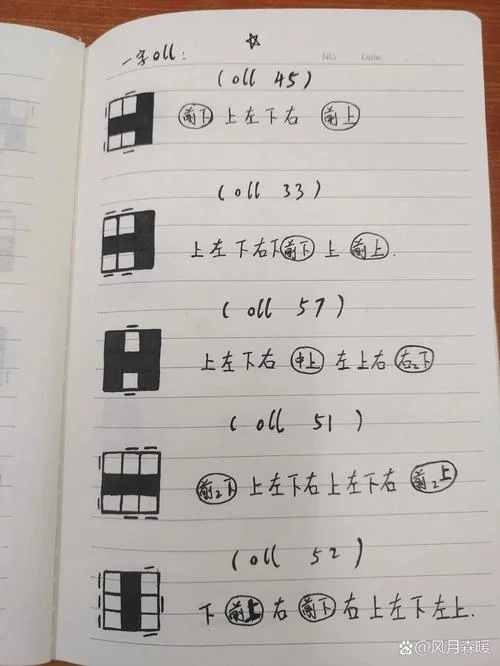 一字oll: ☆
NO Date
(oll 45)
前下 上左下右 前上
(oll 33)
上左下右下 前下 上 前上.
(oll 57)
上左下右 中上 左上右 右2下
(oll 51)
前2下 上左下右上左下右 前2上
(oll 52)
下 前上 右 前下 右上左下左上.
@风月森暖